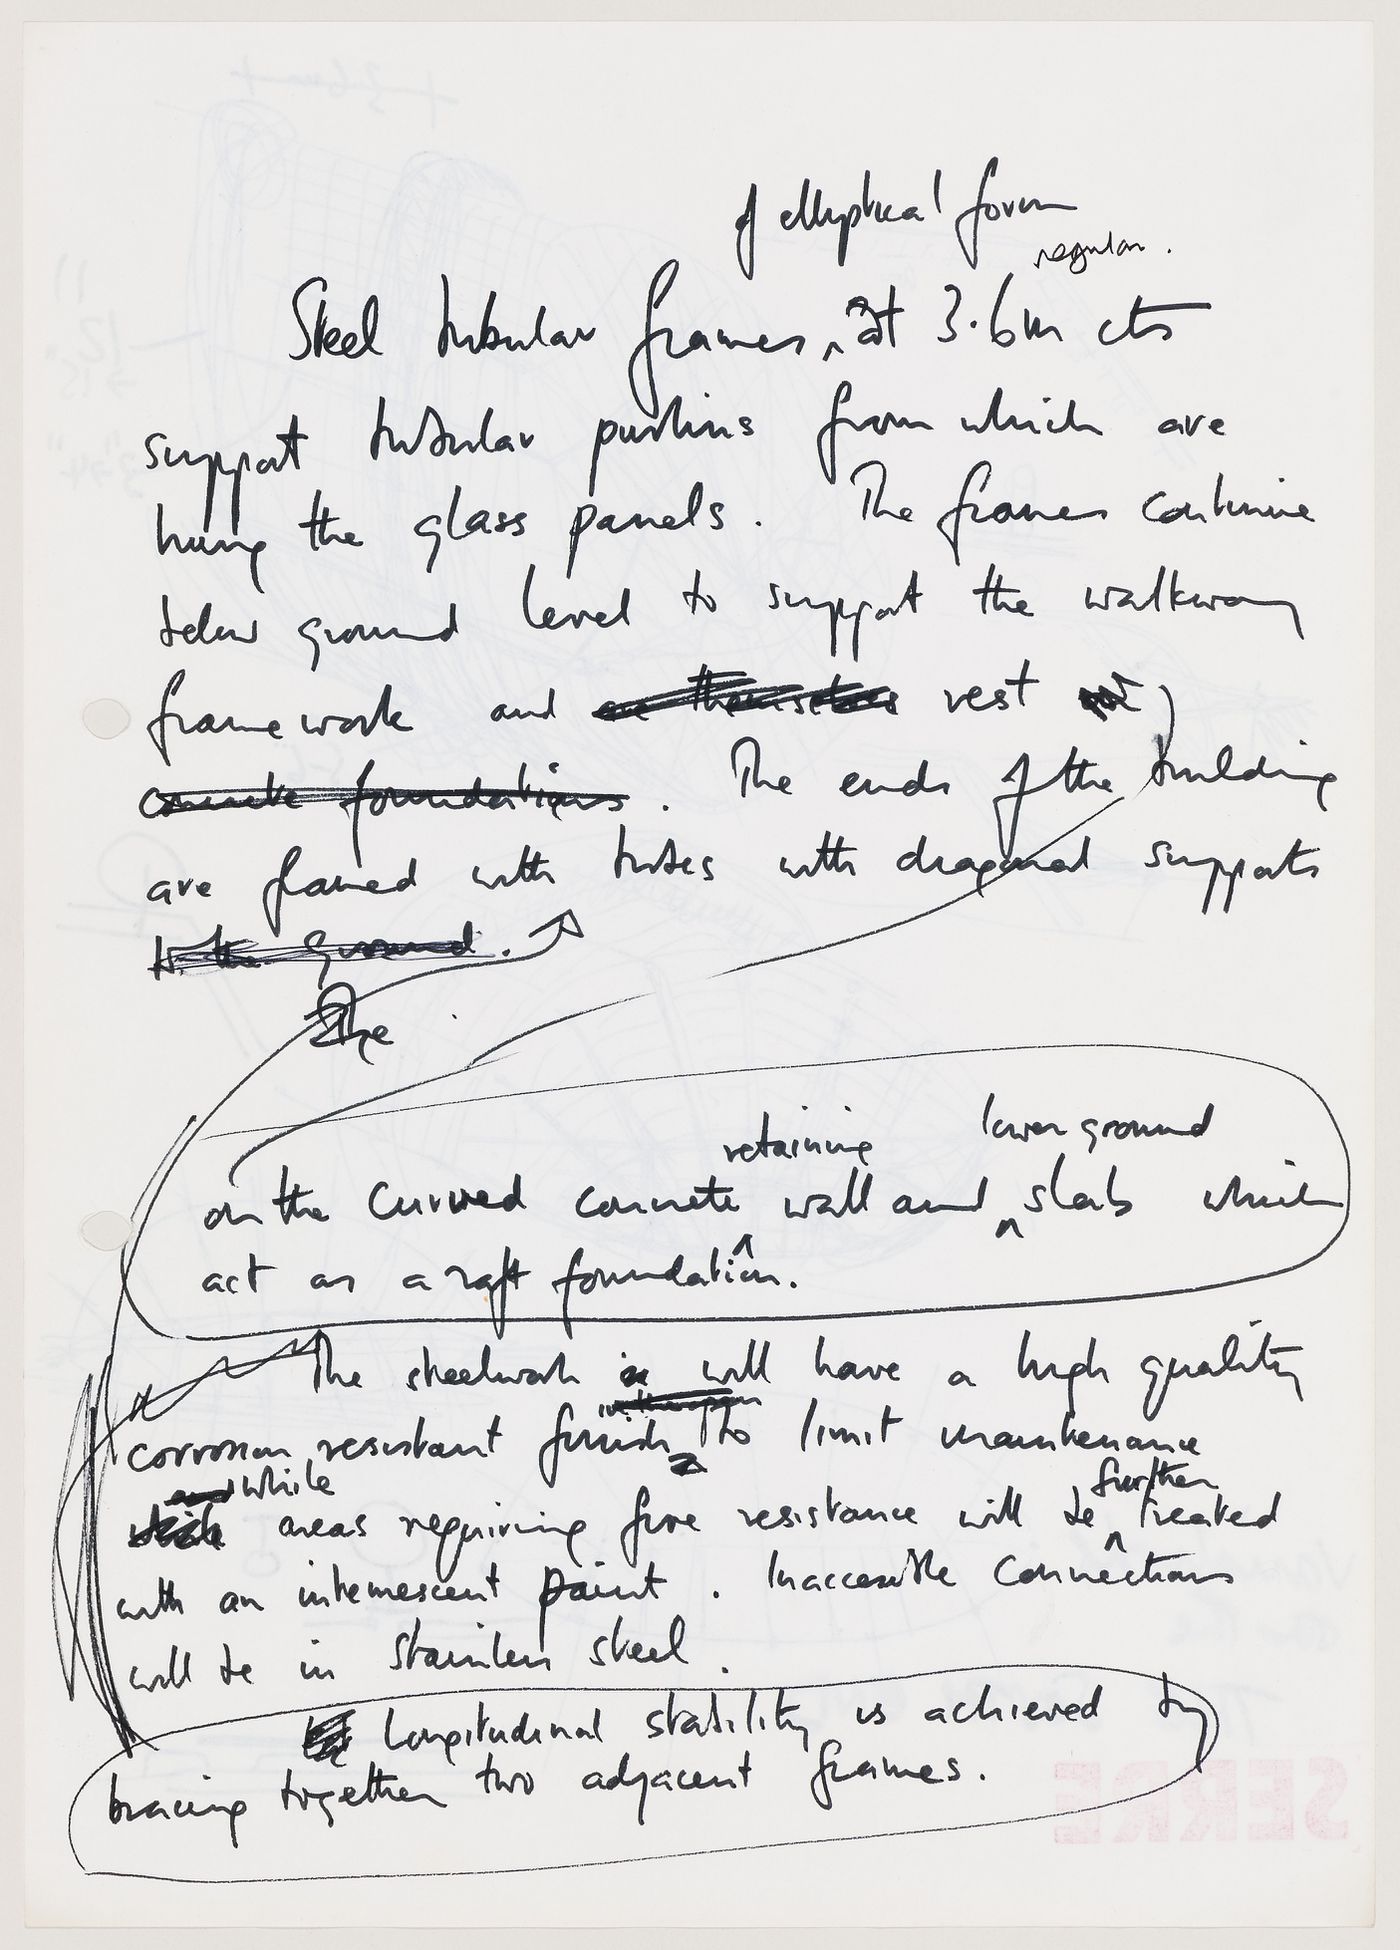 of elliptical form
regular.
Steel tubular frames, at 3.6m cts
support tubular purlins from which are
hung the glass panels. The frames continue
below ground level to support the walkway
framework and are themselves rest
concrete foundations. The ends of the building
are framed with tubes with diagonal supports
to the ground.
The
retaining lower ground
on the curved concrete wall and slab which
act as a raft foundation.
The steelwork is will have a high quality
corrosion resistant finish to limit maintenance
and while further
areas requiring fire resistance will be treated
with an intemescent paint. Inaccessible connections
will be in stainless steel.
Longitudinal stability is achieved by
bracing together two adjacent frames.
SERRE